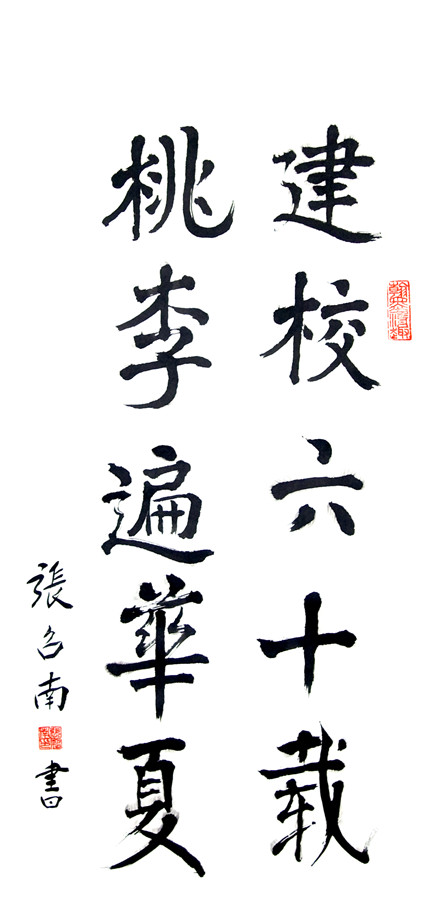 建校六十载
桃李遍華夏
張召南書